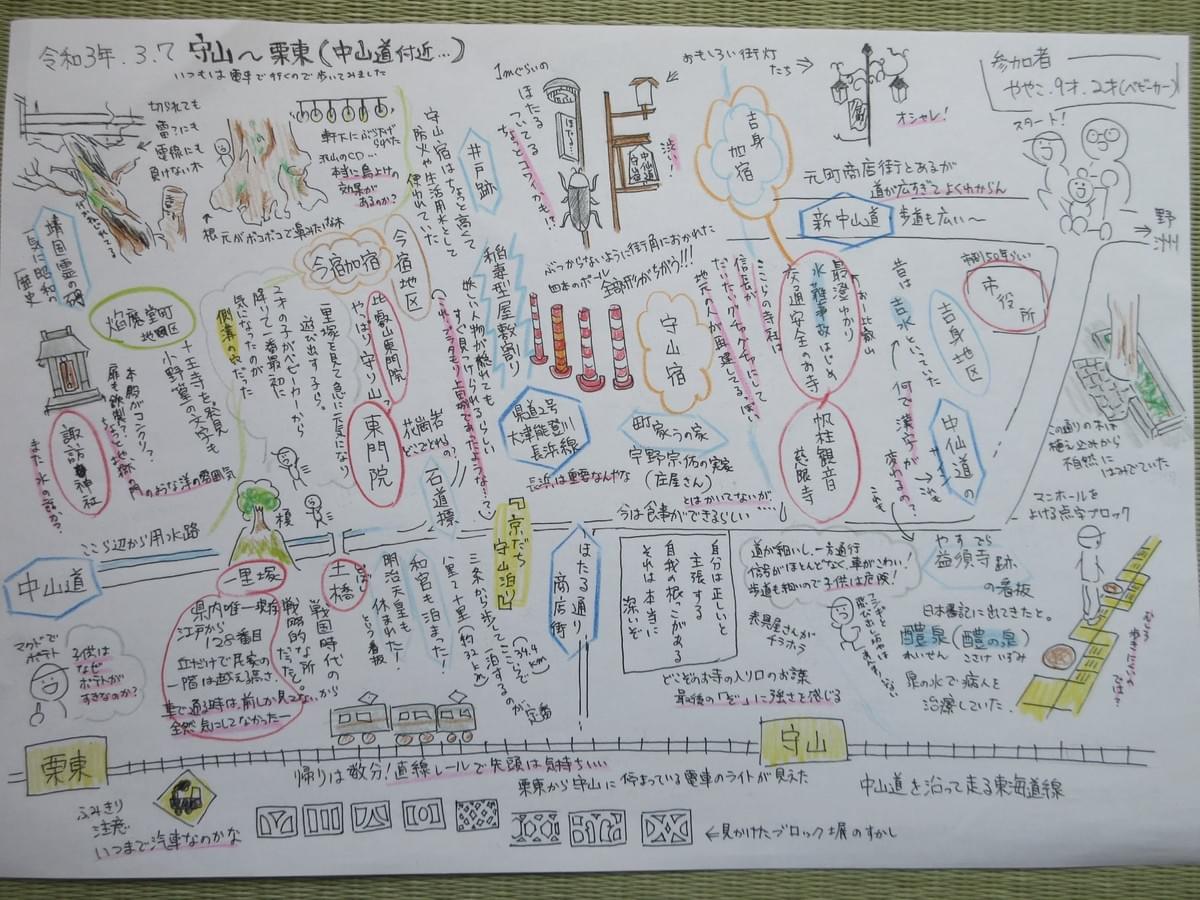 令和3年.3.7 守山～栗東(中山道付近…)
いつもは電車で行くので歩いてみました
参加者
ややこ.9才.2才(ベビーカー)
スタート!
⇒野洲
おもしろい街灯たち⇒
オシャレ!
渋い!
1mぐらいの
ほたる
ついてる
ちょっとコワイかも!?
ほたる
中仙道
守山宿
切れても
雷?にも
電線にも
負けない木
根元がボコボコで痛みたいな木
軒下にぶら下げられた
沢山のCD…
本当に鳥よけの
効果が
あるのか?
井戸跡
守山宿はちょっと高くて
防火や生活用水として
使われていた
吉身
加宿
元町商店街とあるが
道が広すぎてよくわからん
新中山道
歩道も広い～
市制50年らしい
市役所
吉身地区
昔は
吉水といっていた
何で漢字が
変わるの?
これも
中仙道の
サイン
この通りの木は
植え込みから
自然に
はみでていた
最澄ゆかり
お～比叡山
水難事故はじめ
交通安全のお寺
帆柱観音
慈眼寺
ここらの寺社は
信長が
だいたいグチャグチャにして
地元の人が再建してるっぽい
守山宿
ぶつからないように街角におかれた
四本のポール
全部形がちがう!!!
稲妻型屋敷割り
妖しい人物が隠れても
すぐ見つけられるらしい
(これブラタモリ上田编であったような…?)
県道2号
大津能登川
長浜線
長浜は重要なんやな
町家うの家
宇野宗佑の実家
(庄屋さん)
とはかいてないが
今は食事ができるらしい….
今宿地区
今宿加宿
比叡山東門院
やっぱり守り山
東門院
花崗岩
どこでとれるの?
石道標
一里塚を見て急に元気になり
遊び出す子ら。
2才の子がベビーカーを
降りて一番最初に
気になったのが
側溝の穴だった
靖国霊の碑
一気に昭和の
歴史
焔魔堂町
地蔵区
十王寺を発見
小野篁の文字も
本殿がコンクリ?
扉も鉄製??
ちょっと地獄の門のような洋の雰囲気
諏訪神社
また水の霊か?
ここら辺から用水路
中山道
榎
一里塚
県内唯一現存
江戸から
128番目
丘だけで民家の
一階は越える高さ。
車で通る時は、前しか見てないから
全然気にしてなかったー
土橋
どばし
戦国時代の
戦略的な所
だった。
明治天皇も
休まれた!
という看板
和宮も泊まった!
『京だち
守山泊り』
三条から歩いてここで
一泊するのが定番
八里て十里(約32km)
(34.4km)
ほたる通り
商店街
自分は正しいと
主張する
自我の根っこがある
それは本当に
深いぞ
どこぞのお寺の入り口のお譲
最後の「ぞ」に強さを感じる
道が細いし、一方通行
信号がほとんどなく、車がこわい!
歩道も細いので子供は危険!
表具屋さんが
チラホラ
やすでら
益須寺跡
の看板
日本書記に出てきたと。
醴泉(醴の泉)
れいせん こさけ いずみ
泉の水で病人を
治療していた.
マンホールを
よける点字ブロック
マクドで
ポテト
子供は
なぜ
ポテトが
すきなのか?
栗東
守山
帰りは数分!直線レールで先頭は気持ちいい
栗東から守山に停まっている電車のライトが見えた
中山道を沿って走る東海道線
ふみきり
注意
いつまで汽車なのかな
←見かけたブロック塀のすかし